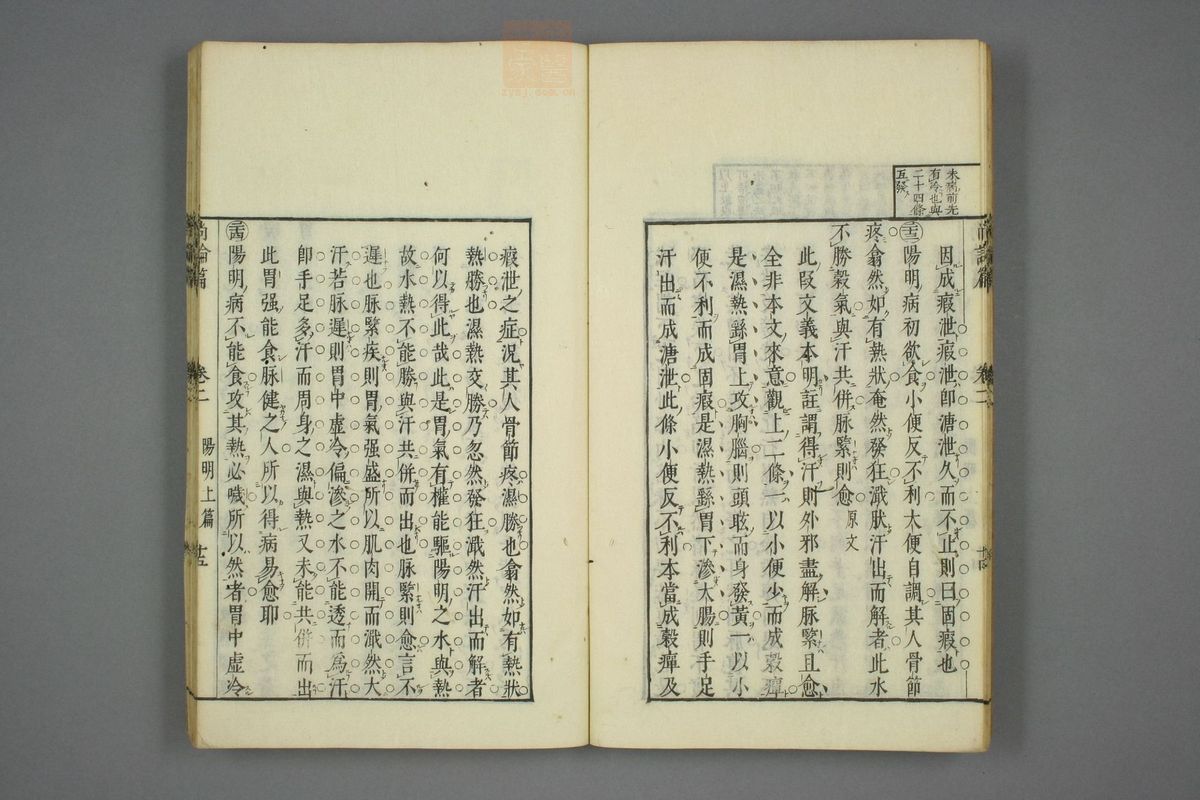 未病前先
有冷也與
二十四條
互發
因成瘕泄瘕泄即溏泄久而不止則曰固瘕也
㊂陽明病初欲食小便反不利大便自調其人骨節
疼翕然如有熱狀奄然發狂濈然汗出而解者此水
不勝穀氣與汗共併脉緊則愈 原文
此叚文義本明註謂得汗則外邪盡解脉緊且愈
全非本文來意觀上二條一以小便少而成穀癉
是濕熱繇胃上攻胸腦則頭眩而身發黃一以小
便不利而成固瘕是濕熱繇胃下滲大腸則手足
汗出而成溏泄此條小便反不利本當成穀癉及
瘕泄之症況其人骨節疼濕勝也翕然如有熱狀
熱勝也濕熱交勝乃忽然發狂濈然汗出而解者
何以得此哉此是胃氣有權能驅陽明之水與熱
故水熱不能勝與汗共併而出也脉緊則愈言不
遲也脉緊疾則胃氣强盛所以肌肉開而濈然大
汗若脉遲則胃中虛冷偏滲之水不能透而爲汗
卽手足多汗而周身之濕與熱又未能共併而出
此胃强能食脉健之人所以得病易愈耶
陽明病不能食攻其熱必噦所以然者胃中虛冷
尚論篇
卷二
尚論篇
卷二
陽明上篇
十五
zysj.com.cn